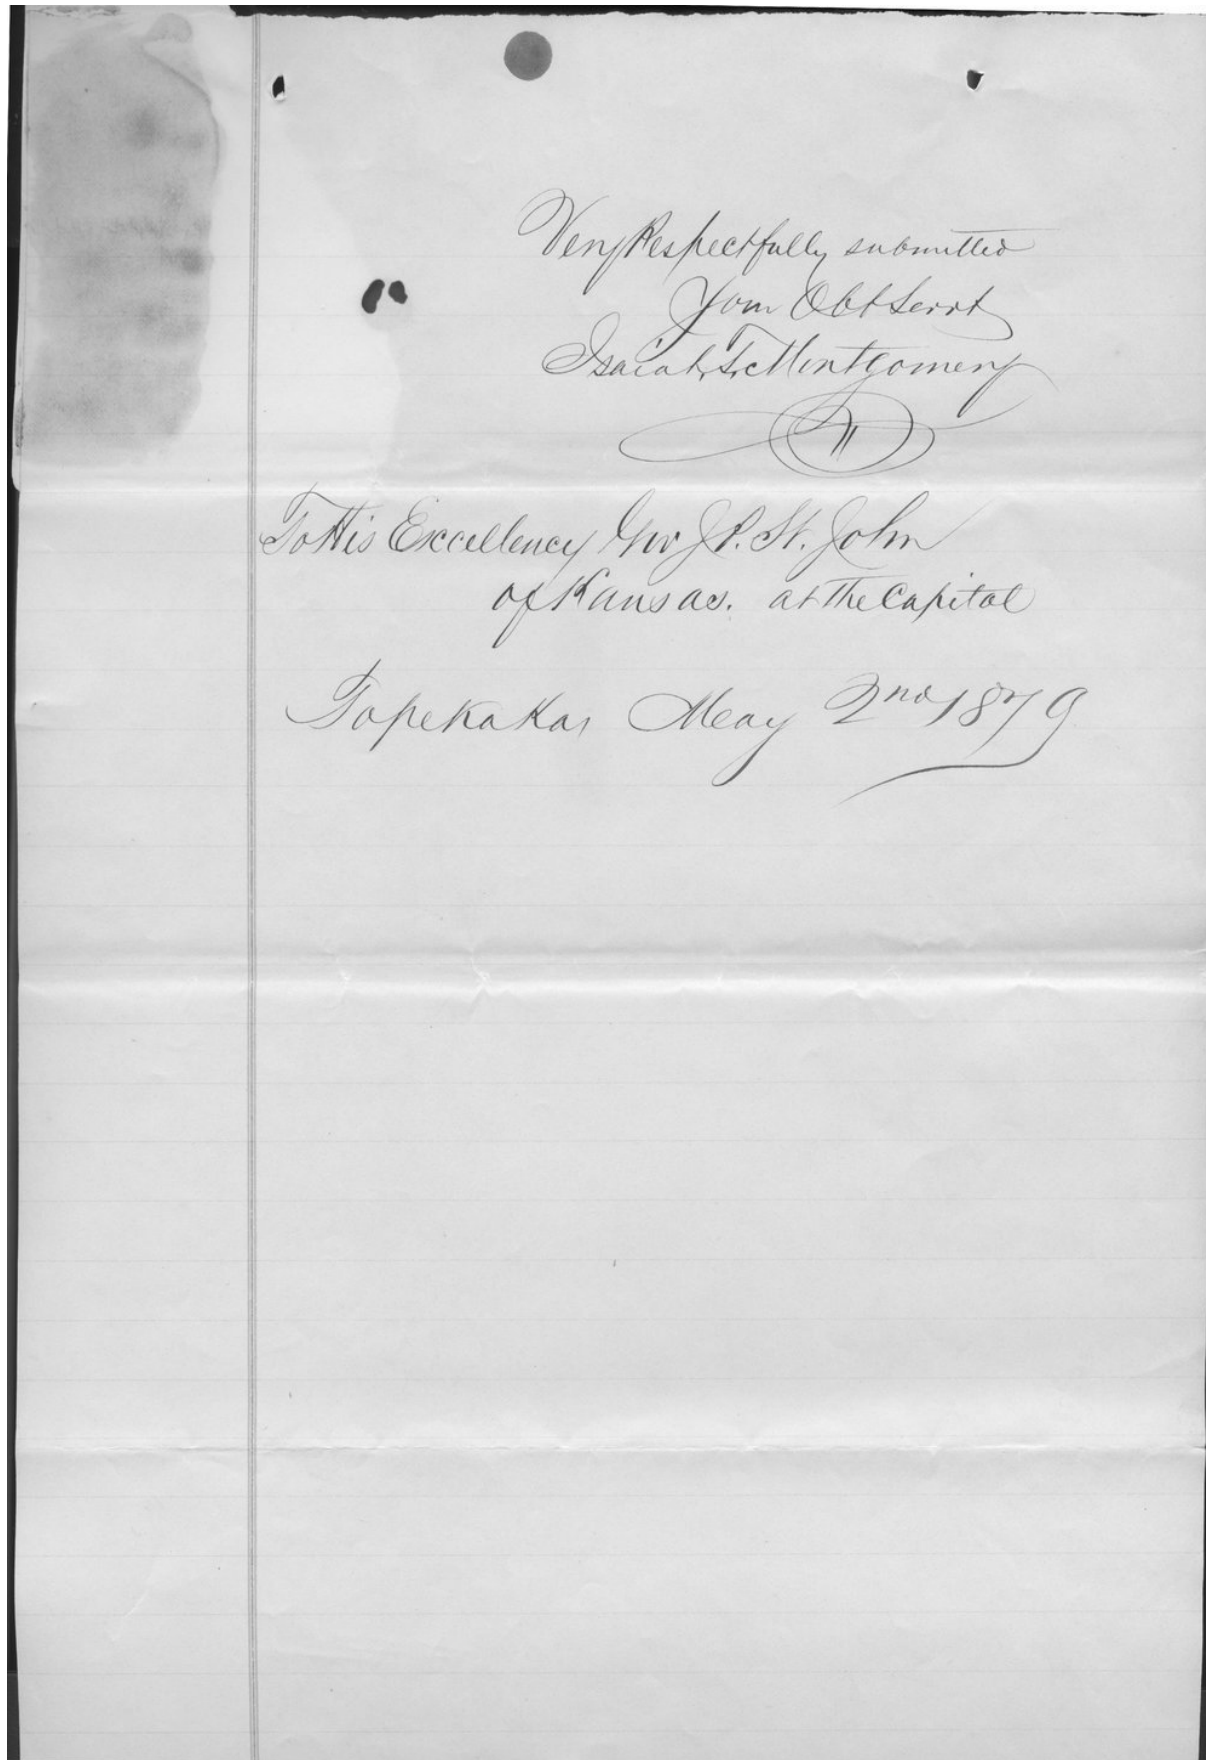 Very Respectfully submitted
Your Obt Servt
Isaiah T. Montgomery
To His Excellency Gov J.P. St. John
of Kansas. at the Capital
Topeka Kas May 2nd 1879